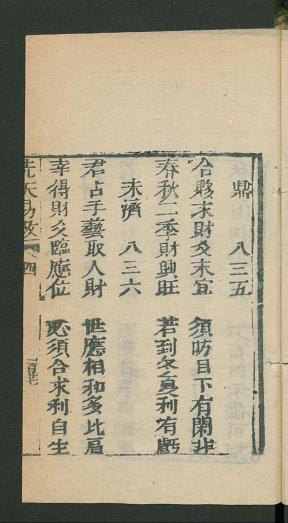 鼎　八三五
合夥求財爻未宜　須防目下有閑非
春秋二季財興旺　若到冬夏利有虧
未濟　八三六
君占手藝取人財　世應相和多比肩
幸得財爻臨應位　必須合求利自生
先天易數　四